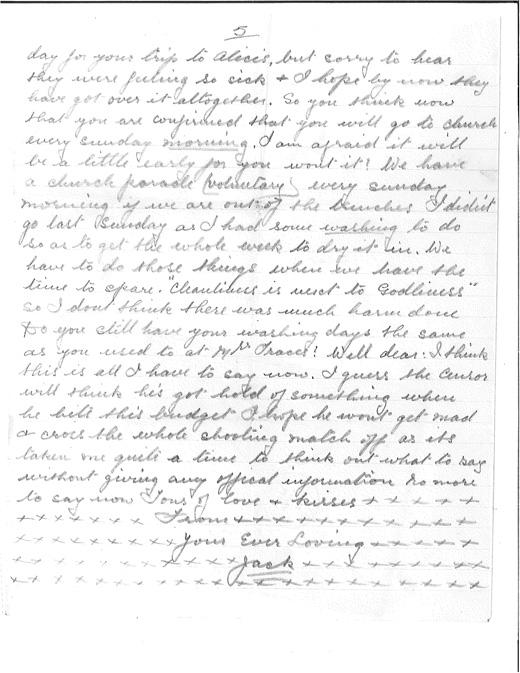 5
day for your trip to Alicis, but sorry to hear
they were feeling so sick & I hope by now they
have got over it altogether. So you think now
that you are confirmed that you will go to church
every sunday morning. I am afraid it will
be a little early for you wont it? We have
a church parade (voluntary) every sunday
morning if we are out of the trenches I did'nt
go last Sunday as I had some washing to do
so as to get the whole week to dry it in. We
have to do those things when we have the
time to spare. "Cleanliness is next to Godliness"
so I dont think there was much harm done
Do you still have your washing days the same
as you used to at Mrs Traces? Well dear I think
this is all I have to say now. I guess the Censor
will think he's got hold of something when
he this budget I hope he wont get mad
& cross the whole shooting match off as its
taken me quite a time to think out what to say
without giving any offical information no more
to say now Tons of love & kisses + + + + + +
+ + + + + + + From + + + + + + + + + + + +
+ + + + + + + Your Ever Loving + + + + + +
+ + + + + + + + + + Jack + + + + + + + + +
+ + + + + + + + + + + + + + + + + + + + +